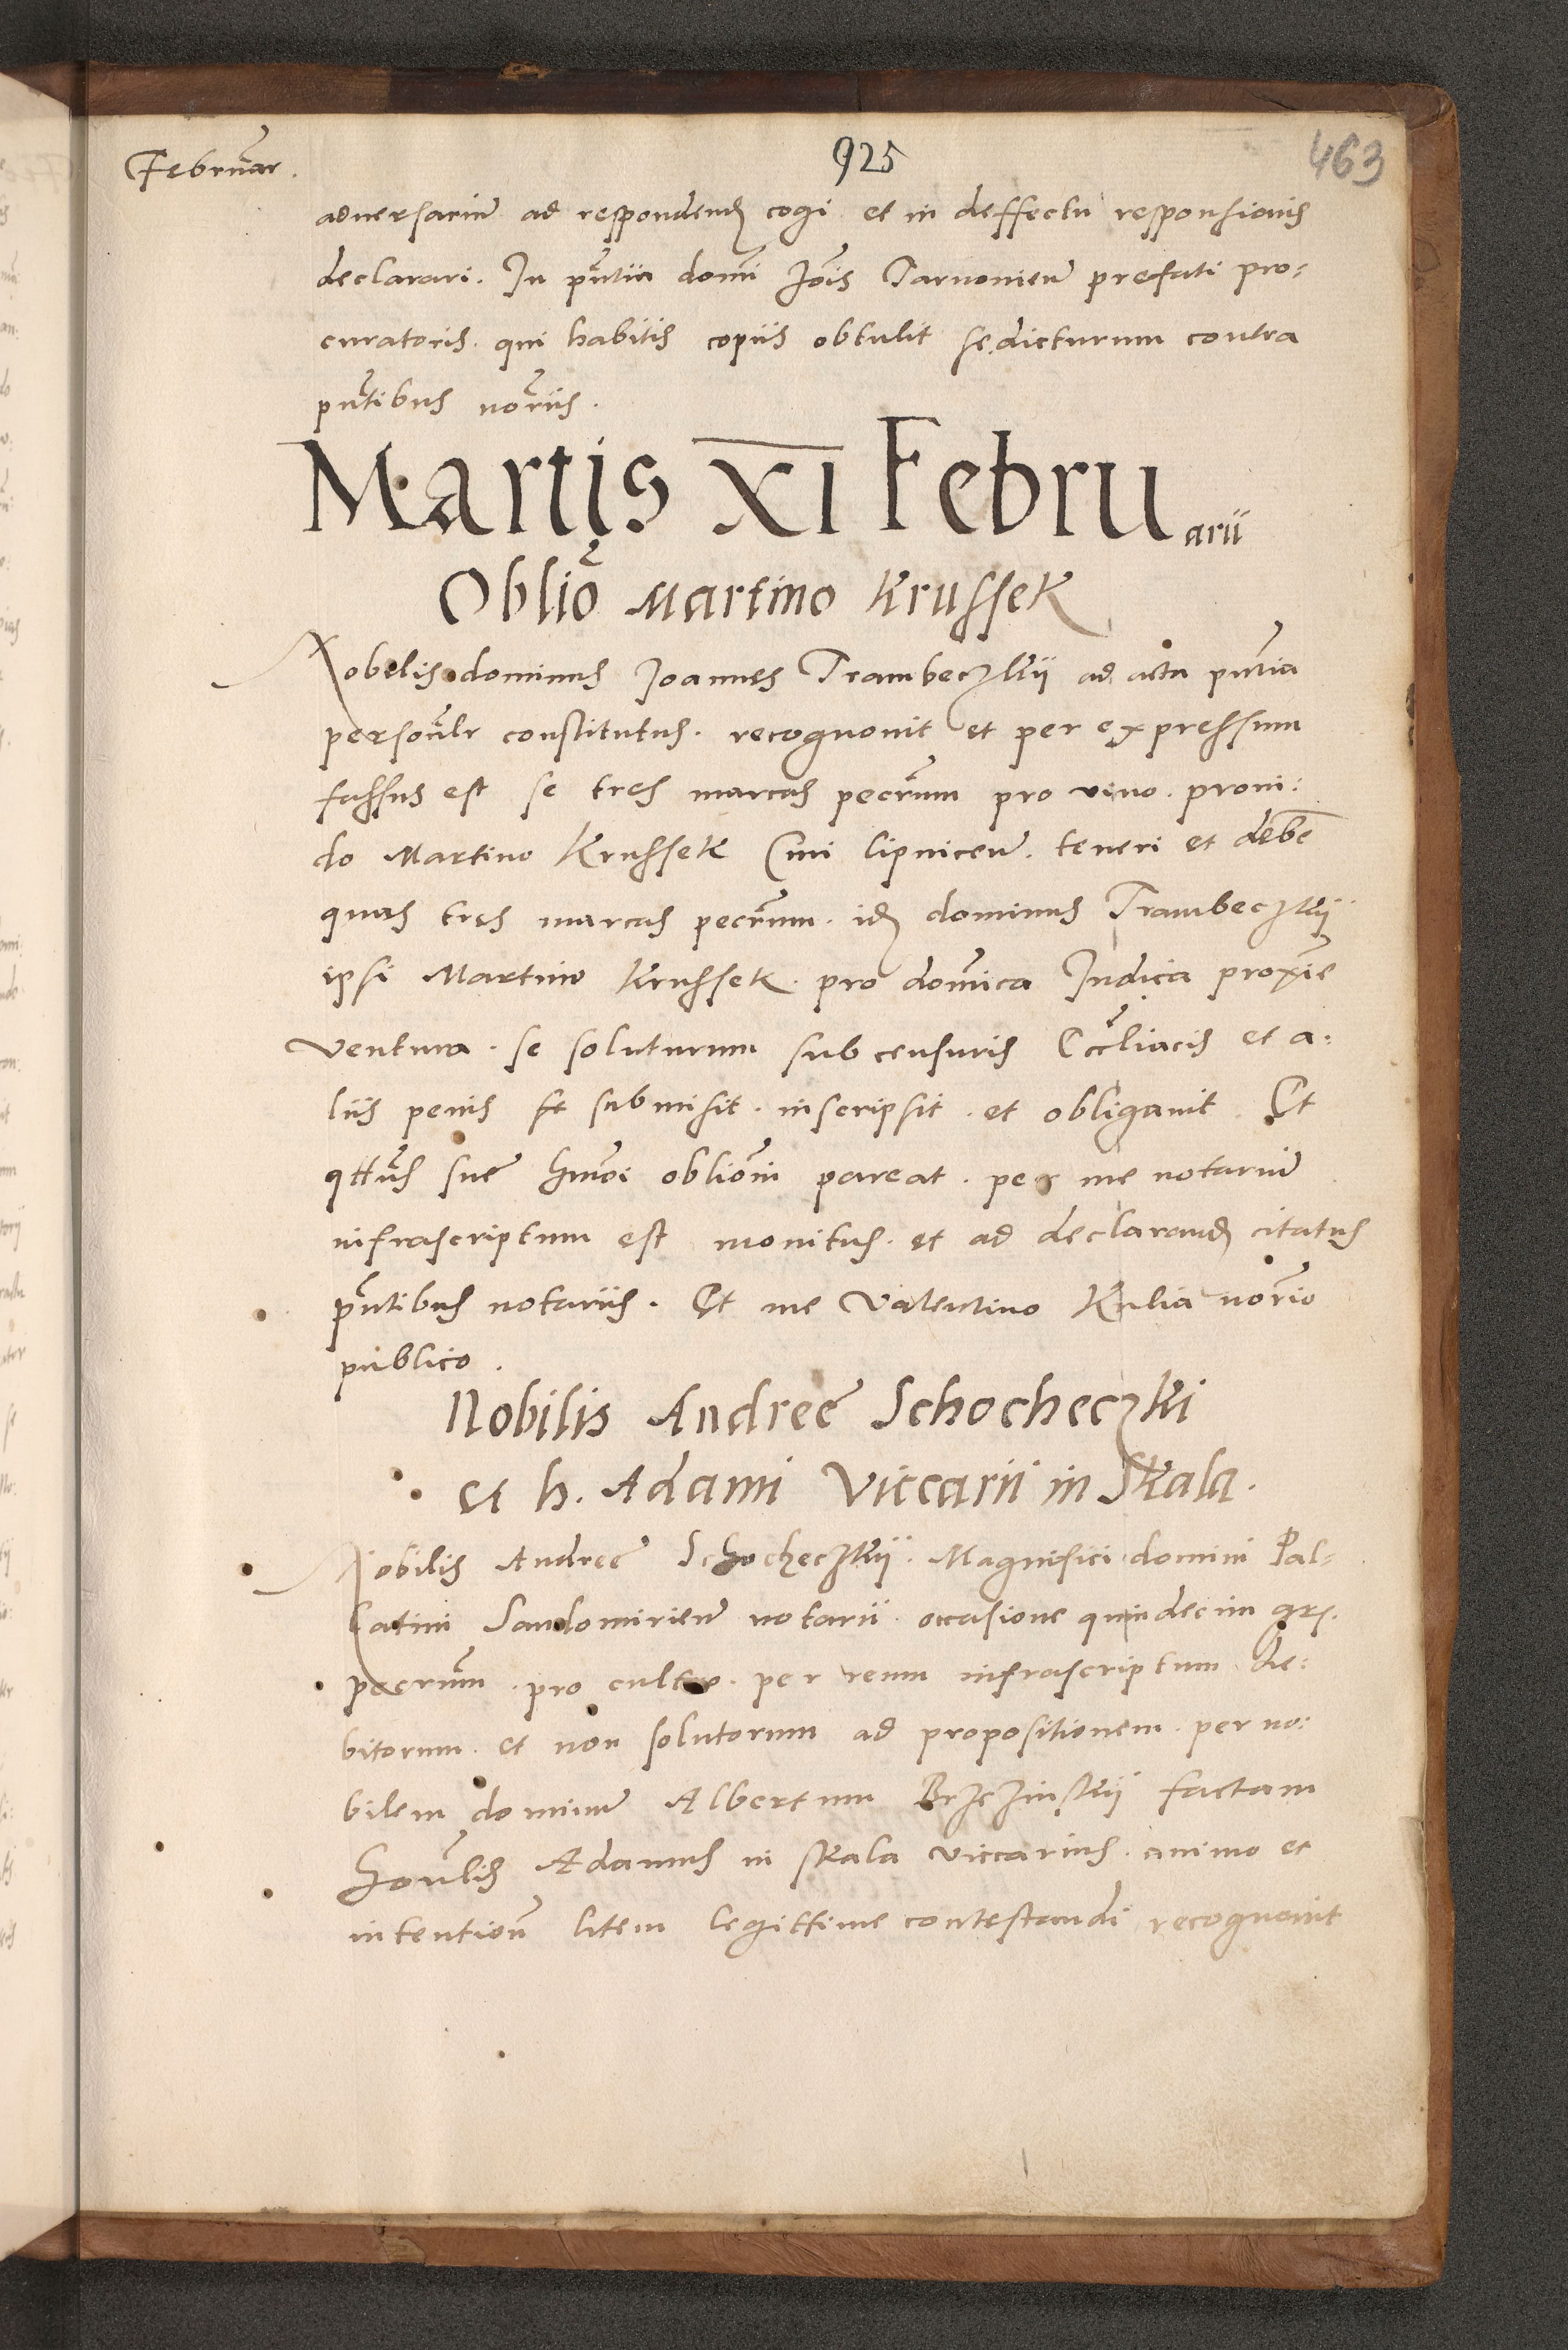 Februar.
925
463
adversariũ ad respondenđ cogi et in deffectu responsionis
declarari. In pñtia domĩ Joĩs Tarnovieñ prefati pro:
curatoris. qui habitis copiis obtulit se dicturum contra
pñtibus norĩis.
Martis XI Febru arii
Obliõ Martino Krussek
Nobilis dominus Joannes Trambeczkii ad acta pñtia
personãlr constitutus. recognovit et per expressum
fassus est se tres marcas pecrũm pro vino. provi:
do Martino Krussek Civi lipniceñ. teneri et debẽ
quas tres marcas pecrũm. idẽ dominus Trambeczkii
ipsi Martino Krussek. pro domĩca Judica proxĩe
ventura. se soluturum sub censuris Eccliãcis et a:
liis penis se submisit. inscripsit. et obligavit. Et
qttũs sue hmõi obliõni pareat. per me notariũ
infrascriptum est monitus. et ad declarandũ citatus
pñtibus notariis. Et me Valentino Kulia norĩo
publico.
Nobilis Andree Schocheczki
et h. Adami Viccarii in Skala.
Nobilis Andree Schocheczkii. Magnifici domini Pal=
latini Sandomirieñ notarii. occasione quindecim grs.
pecrũm. pro cultro. per reum infrascriptum de:
bitorum. et non solutorum ad propositionem. per no:
bilem dominũ Albertum Brzezinskii factam
Honãlis Adamus in skala viccarius. animo et
intentioñ litem legittime contestandi recognovit